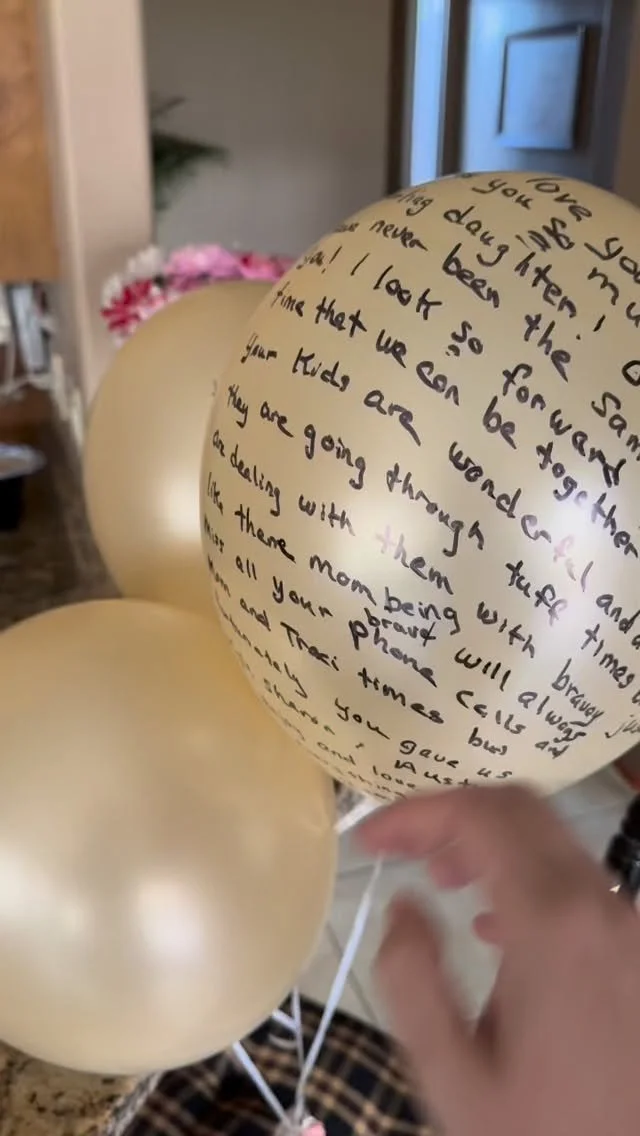 love you
you so mu
daughter!
never been the sam
you! I look so forward
time that we can be together
your Kids are wonderful and
they are going through tuff times
are dealing with them with bravey ju
like there mom being bravt will always
miss all your phone calls and
Mom and Traci times bu
you gave us
Sharon, Aust
and love